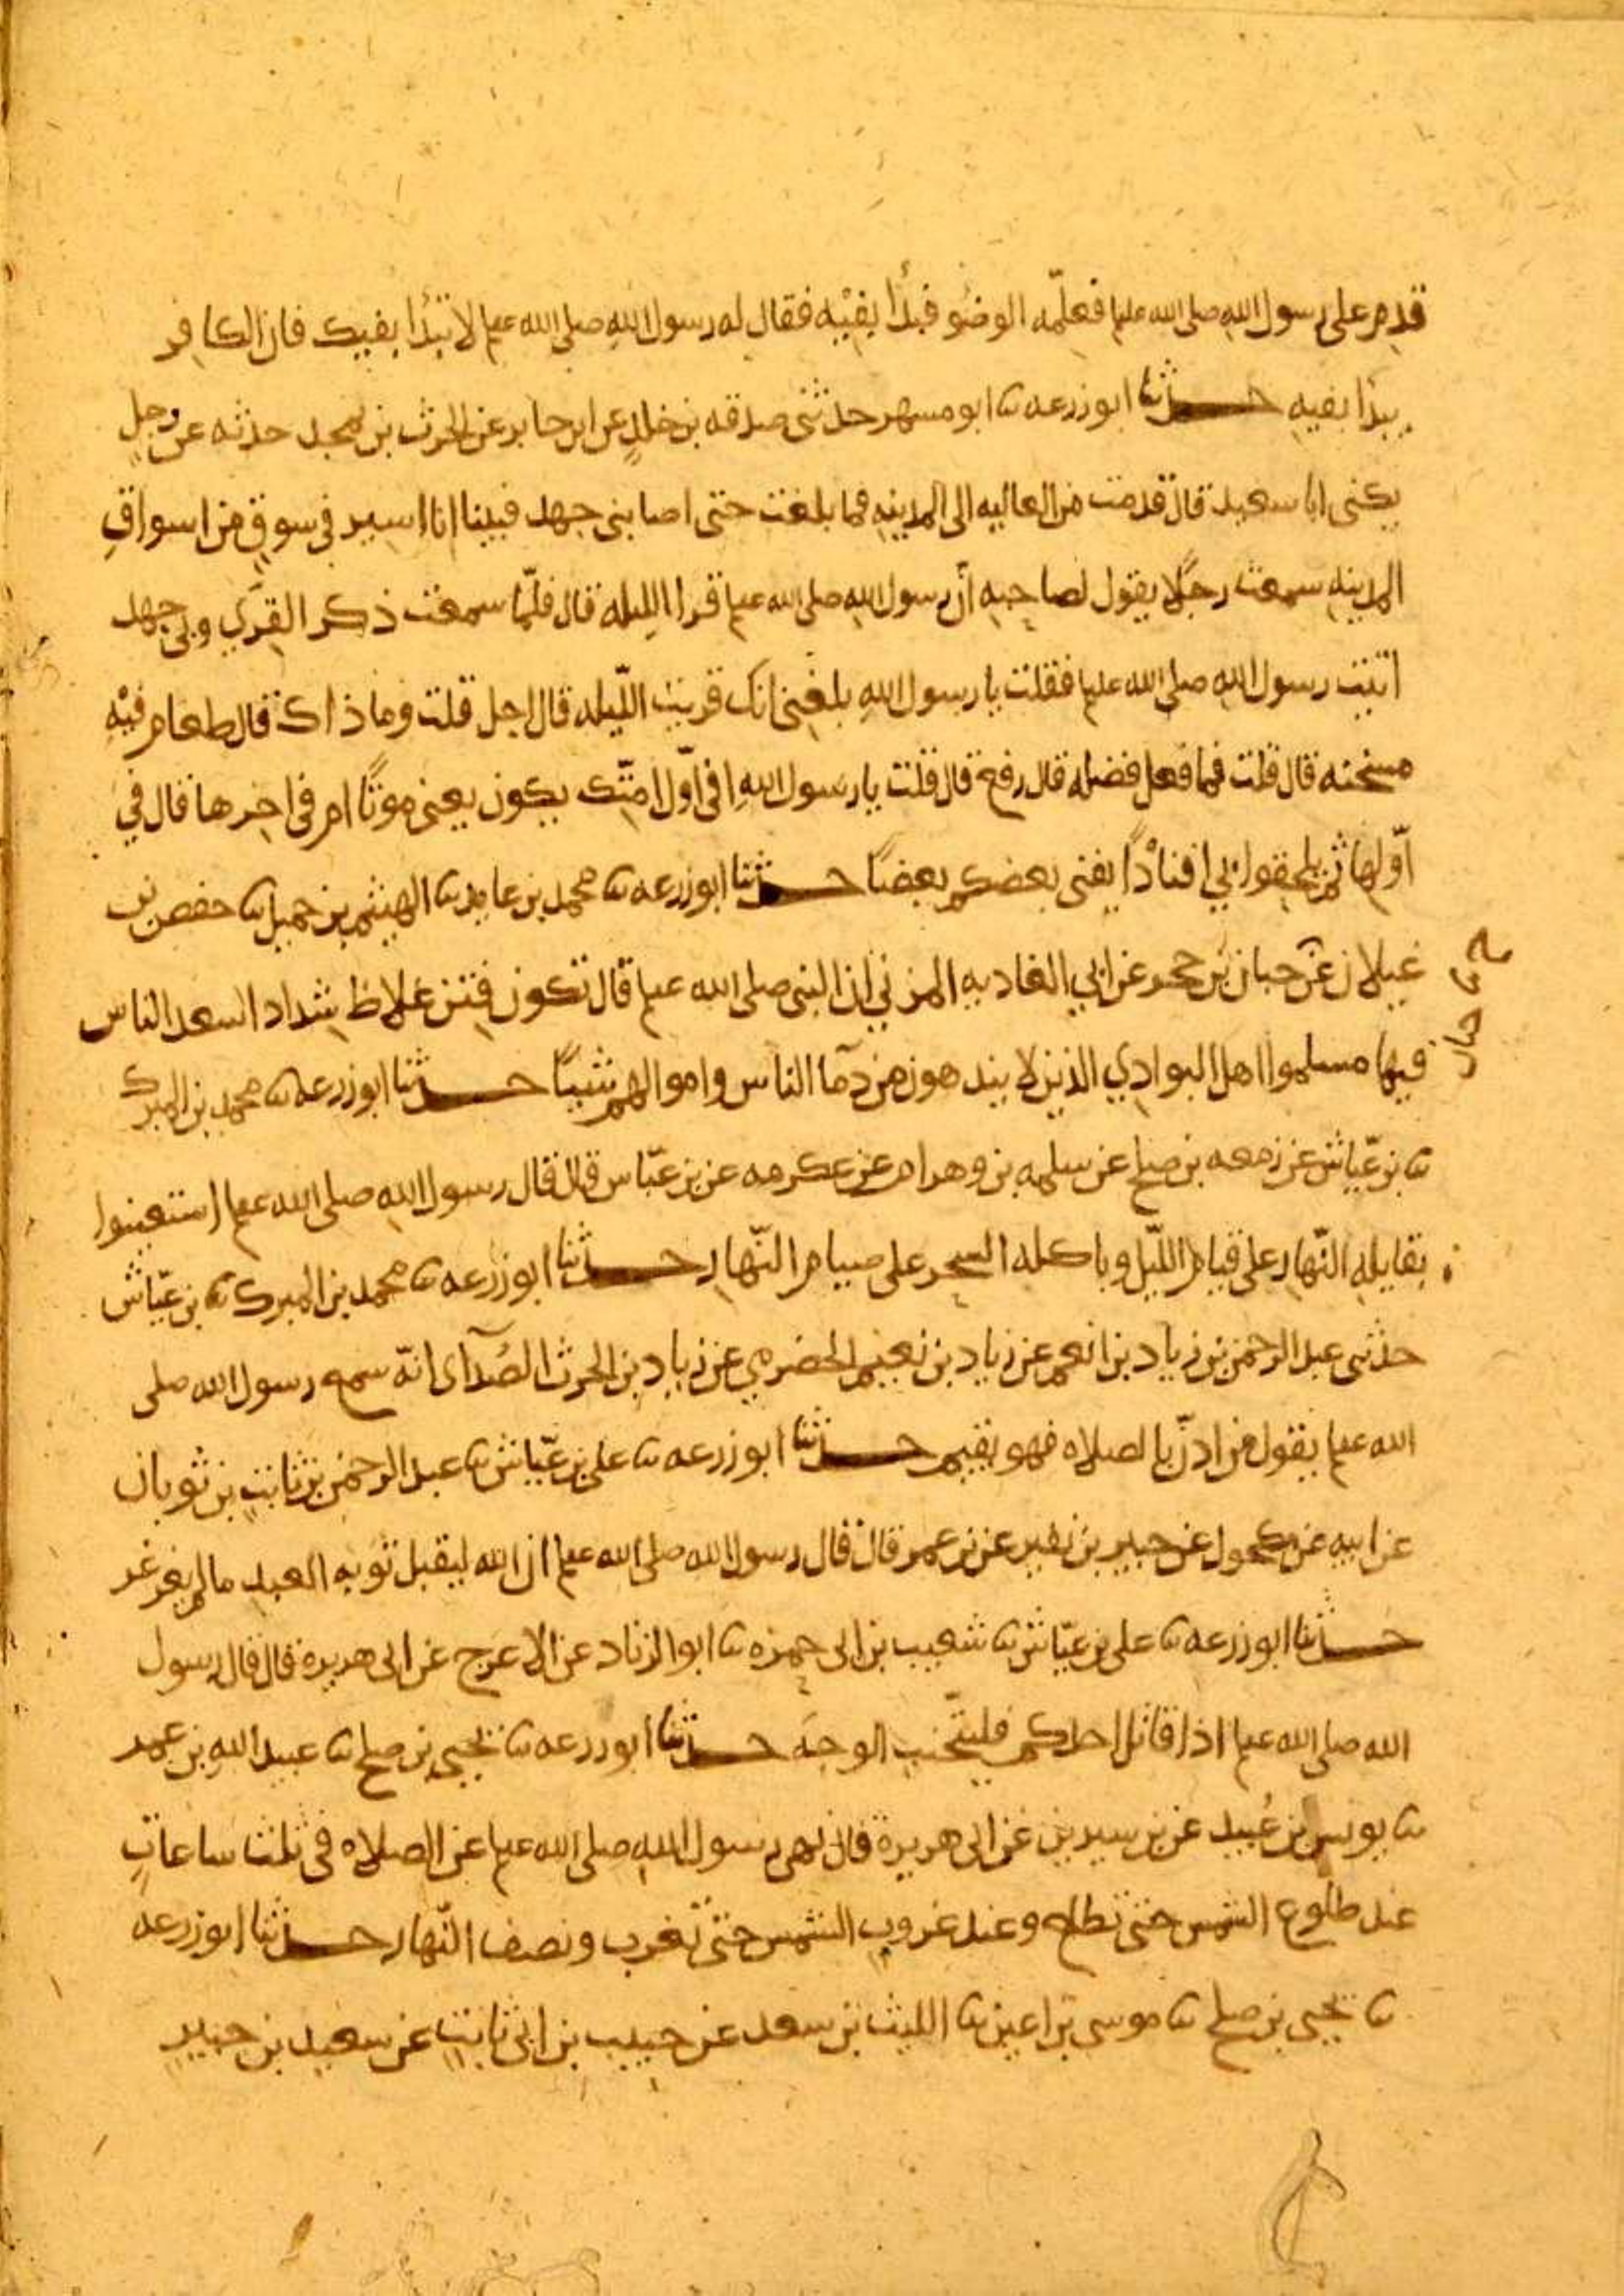 قدم على رسول الله صلى الله عليه فعلّمه الوضُو فبدأ بفيْه فقال له رسول الله صلى الله عليه لا تبْدأ بفيك فان الكافر
يبدَا بفيه حدثنا ابو زرعه ثنا ابو مسهر حدثنى صدقه بن خالدٍ عن ابن جابر عن الحرث بن يمجد حدثه عن رجلٍ
يكنى ابا سعيد قال قدمت من العاليه الى المدينهِ فما بلغت حتى اصابنى جهد فبينا انا اسير فى سوقٍ من اسواقِ
المدينهِ سمعت رجلًا يقول لصاحبِهِ أنّ رسول الله صلى الله عليه قرا الليله قال فلمّا سمعت ذكر القرَي وبي جهد
اتيت رسول الله صلى الله عليه فقلت يا رسول اللهِ بلغنى انك قريت اللّيله قال اجل قلت وما ذاك قال طعام فيْهِ
مسخنه قال قلت فما فعل فضله قال رفع قال قلت يا رسول اللهِ افى اوّل امتّك يكون يعنى موتًا ام فى اخرها قال في
اوّلها ثم يلحقوا بي افنادًا يفنى بعضكم بعضًا حدثنا ابو زرعه ثنا محمد بن عايد ثنا الهيثم بن حميل ثنا حفص بن
غيلان عن حيان بن حجر عن ابي الغاديه المزني ان النبى صلى الله عليه قال تكون فِتن غلاظ شداد اسعد الناس
فيها مسلموا اهل البوادي الذين لا يندهون من دمآ الناس واموالهم شيئًا حدثنا ابو زرعه ثنا محمد بن المبرك
حيان
ثنا بن عيّاش عن زمعه بن صلح عن سلمه بن وهرام عن عكرمه عن بن عبّاس قال قال رسول اللهِ صلى الله عليه استعينوا
بقايله النّهار على قيام اللّيل وباكله السحر على صيام النّهار حدثنا ابو زرعه ثنا محمد بن المبرك ثنا بن عيّاش
حدثنى عبد الرحمن بن زياد بن انعم عن زياد بن نعيم الحضرمي عن زيادِ بن الحرث الصُدآى انهّ سمع رسول الله صلى
الله عليه يقول من اذّن بالصلاه فهو يقيم حدثنا ابو زرعه ثنا على بن عيّاش ثنا عبد الرحمن بن ثابتِ بن ثوبان
عن ابيه عن مكحول عن جبير بن نفير عن بن عمر قال قال رسول الله صلى الله عليه ان الله ليقبل توبه العبد ما لم يغرغر
حدثنا ابو زرعه ثنا على بن عيّاش ثنا شعيب بن ابى حمزه ثنا ابو الزناد عن الاعرج عن ابى هريرة قال قال رسول
الله صلى الله عليه اذا قاتل احدكم فليتجنب الوجهَ حدثنا ابو زرعه ثنا يحيى بن صلح ثنا عبيد اللهِ بن عمر
ثنا يونس بن عُبيد عن بن سيرين عن ابى هريرة قال نهى رسول الله صلى الله عليه عن الصلاه فى ثلث ساعاتٍ
عند طلوع الشمس حتى تطلع وعند غروبِ الشمس حتى تغرب ونصف النّهار حدثنا ابو زرعه
ثنا يحيى بن صلح ثنا موسى بن اعين ثنا الليث بن سعد عن حبيب بن ابى ثابتٍ عن سعيد بن جبير